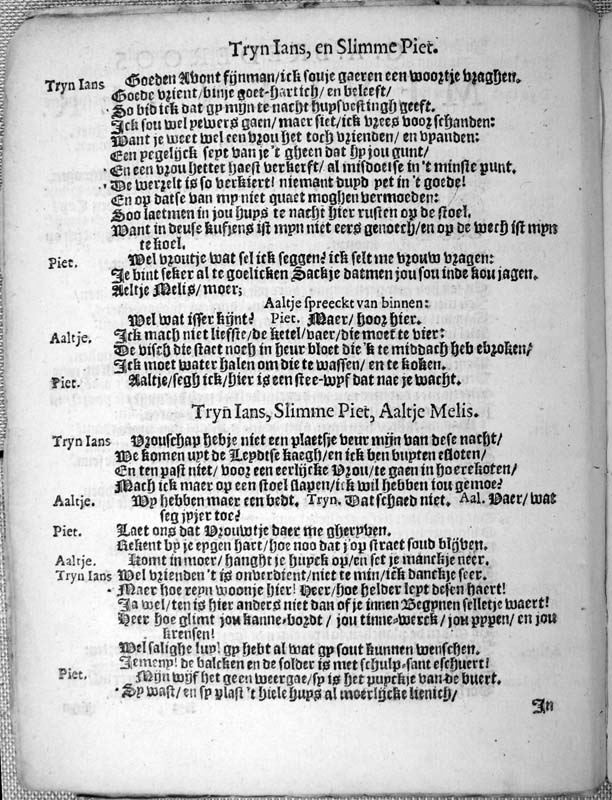 Tryn Ians, en Slimme Piet.
Tryn Ians Goeden Avont fijnman/ick souje gaeren een woortje vraghen.
Goede vrient/binje goet-hartich/ en beleeft/
So bid ick dat gy mijn te nacht huysvestingh geeft.
Ick sou wel yewers gaen/ maer siet/ick vrees voor schanden:
Want je weet wel een vrou het toch vrienden/ en vyanden:
Een yegelijck seyt van je 't gheen dat hy jou gunt/
En een vrou hetter haest verkerft/ al misdoetse in 't minste punt.
De werrelt is so verkiert! niemant duyd yet in 't goede!
En op datse van my niet quaet moghen vermoeden:
Soo laetmen in jou huys te nacht hier rusten op de stoel.
Want in deuse kufjens ist mijn niet eers genoech/en op de wech ist mijn
te koel.
Piet. Wel vroutje wat sel ick seggen? ick selt me vrouw vragen:
Je bint seker al te goelicken Sackje datmen jou sou inde kou jagen.
Aeltje Melis/ moer;
Aaltje spreeckt van binnen:
Wel wat isser kijnt? Piet. Maer/ hoor hier.
Aaltje. Ick mach niet liefste/de ketel/vaer/die moet te vier:
De visch die staet noch in heur bloet die 'k te middach heb ebroken/
Ick moet water halen om die te wassen/ en te koken.
Piet. Aaltje/segh ick/hier is een stee-wijf dat nae je wacht.
Tryn Ians, Slimme Piet, Aaltje Melis.
Tryn Ians Vrouschap hebje niet een plaetsje veur mijn van dese nacht/
We komen uyt de Leydtse kaegh/en ick ben buyten esloten/
En ten past niet/ voor een eerlijcke Vrou/te gaen in hoerekoten/
Mach ick maer op een stoel slapen/ick wil hebben jou gemoe?
Aaltje. Wy hebben maer een bedt. Tryn. Dat schaed niet. Aal. Vaer/ wat
seg jyjer toe?
Piet. Laet ons dat Vrouwtje daer me gheryven.
Rekent by je eygen hart/hoe noo dat j'op straet soud blijven.
Aaltje. Komt in moer/ hanght je huyck op/en set je manckje neer.
Tryn Ians Wel vrienden 't is onverdient/niet te min/ick danckje seer.
Maer hoe reyn woonje hier! Heer/hoe helder leyt desen haert!
Ja wel/ten is hier anders niet dan of je innen Begynen selletje waert!
Heer hoe glimt jou kanne-bordt / jou tinne-werck/ jou pypen/ en jou
krensen!
Wel salighe luy! gy hebt al wat gy sout kunnen wenschen.
Jemeny! de balcken en de solder is met schulp-sant eschuert!
Piet. Mijn wijf het geen weergae/sy is het puyckje van de buert.
Sy wast/ en sy plast 't hiele huys al moerlijcke lienich/
In